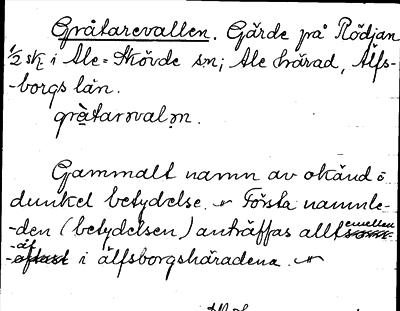 Gråtarevallen. Gärde på Rödjan
1/2 sk i Ale-Skövde sn; Ale härad, Älfs-
-borgs län.
grȧ̀tarɘvalən.
Gammalt namn av okänd o
dunkel betydelse. Första namnle-
-den (betydelsen) anträffas allt emellan
-åt i älfsborgshäradena.